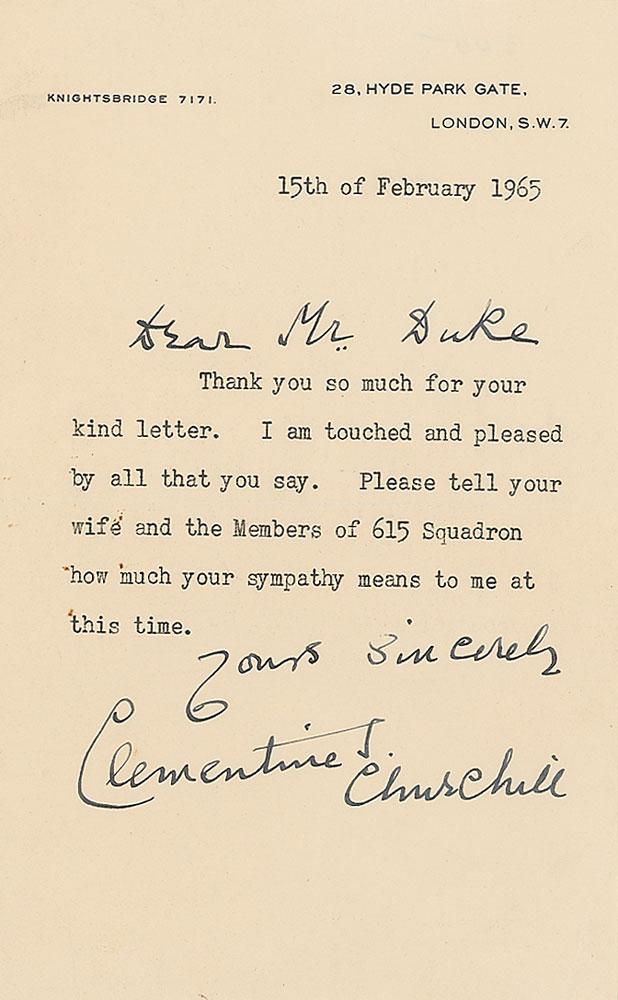 KNIGHTSBRIDGE 7171.
28, HYDE PARK GATE,
LONDON, S.W.7.
15th of February 1965
Dear Mr. Duke
Thank you so much for your
kind letter. I am touched and pleased
by all that you say. Please tell your
wife and the Members of 615 Squadron
how much your sympathy means to me at
this time.
Yours Sincerely
Clementine S.
Churchill